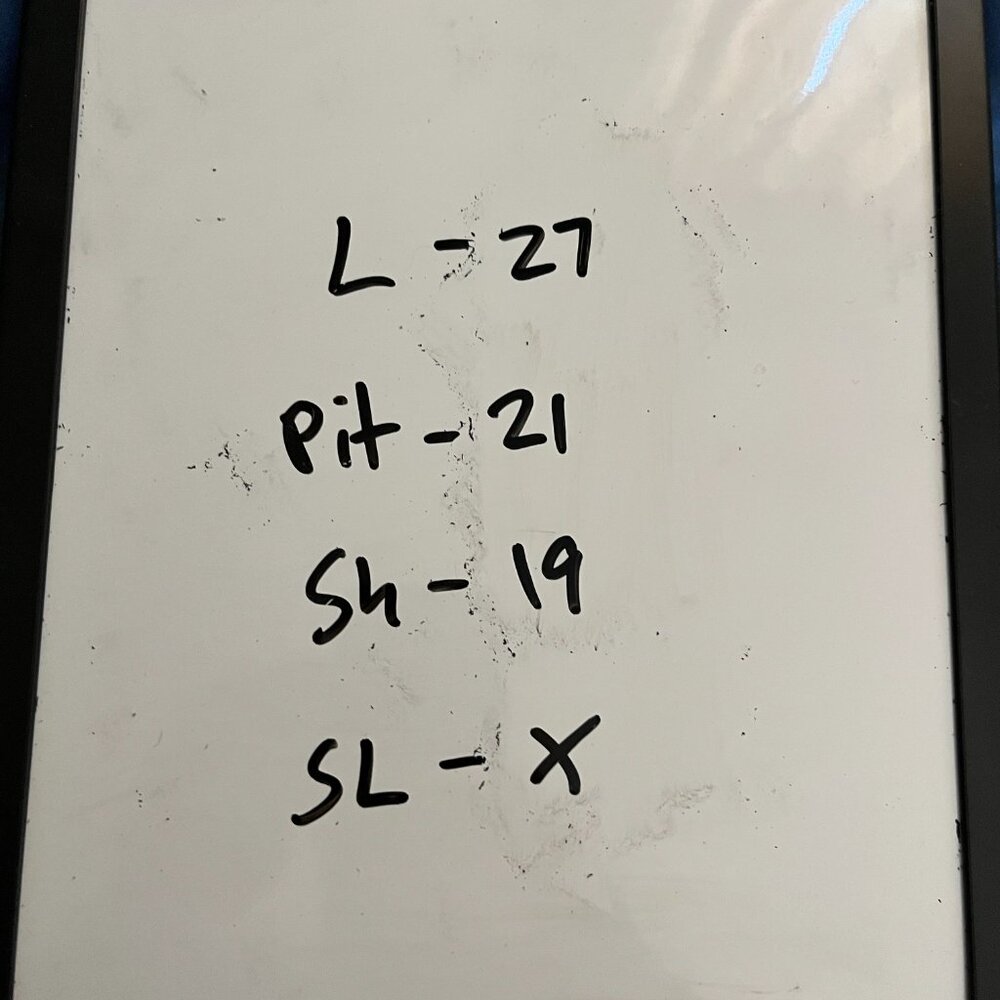 L - 27
Pit - 21
Sh - 19
SL - X